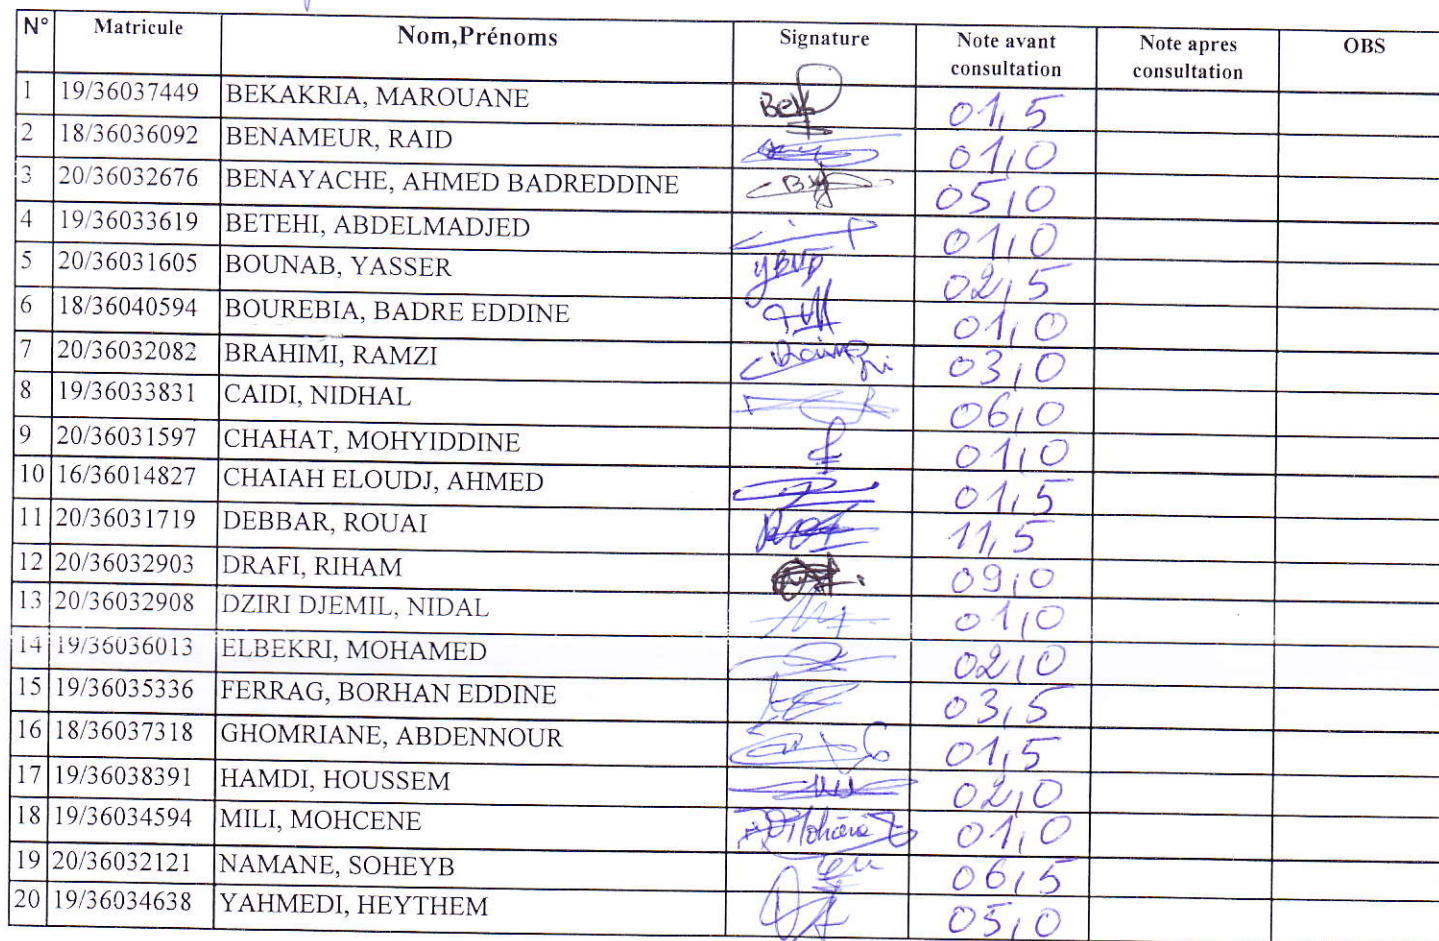 N° Matricule Nom,Prénoms Signature Note avant consultation Note apres consultation OBS
1 19/36037449 BEKAKRIA, MAROUANE 01,5
2 18/36036092 BENAMEUR, RAID 01,0
3 20/36032676 BENAYACHE, AHMED BADREDDINE 05,0
4 19/36033619 BETEHI, ABDELMADJED 01,0
5 20/36031605 BOUNAB, YASSER 02,5
6 18/36040594 BOUREBIA, BADRE EDDINE 01,0
7 20/36032082 BRAHIMI, RAMZI 03,0
8 19/36033831 CAIDI, NIDHAL 06,0
9 20/36031597 CHAHAT, MOHYIDDINE 01,0
10 16/36014827 CHAIAH ELOUDJ, AHMED 01,5
11 20/36031719 DEBBAR, ROUAI 11,5
12 20/36032903 DRAFI, RIHAM 09,0
13 20/36032908 DZIRI DJEMIL, NIDAL 01,0
14 19/36036013 ELBEKRI, MOHAMED 02,0
15 19/36035336 FERRAG, BORHAN EDDINE 03,5
16 18/36037318 GHOMRIANE, ABDENNOUR 01,5
17 19/36038391 HAMDI, HOUSSEM 02,0
18 19/36034594 MILI, MOHCENE 01,0
19 20/36032121 NAMANE, SOHEYB 06,5
20 19/36034638 YAHMEDI, HEYTHEM 05,0